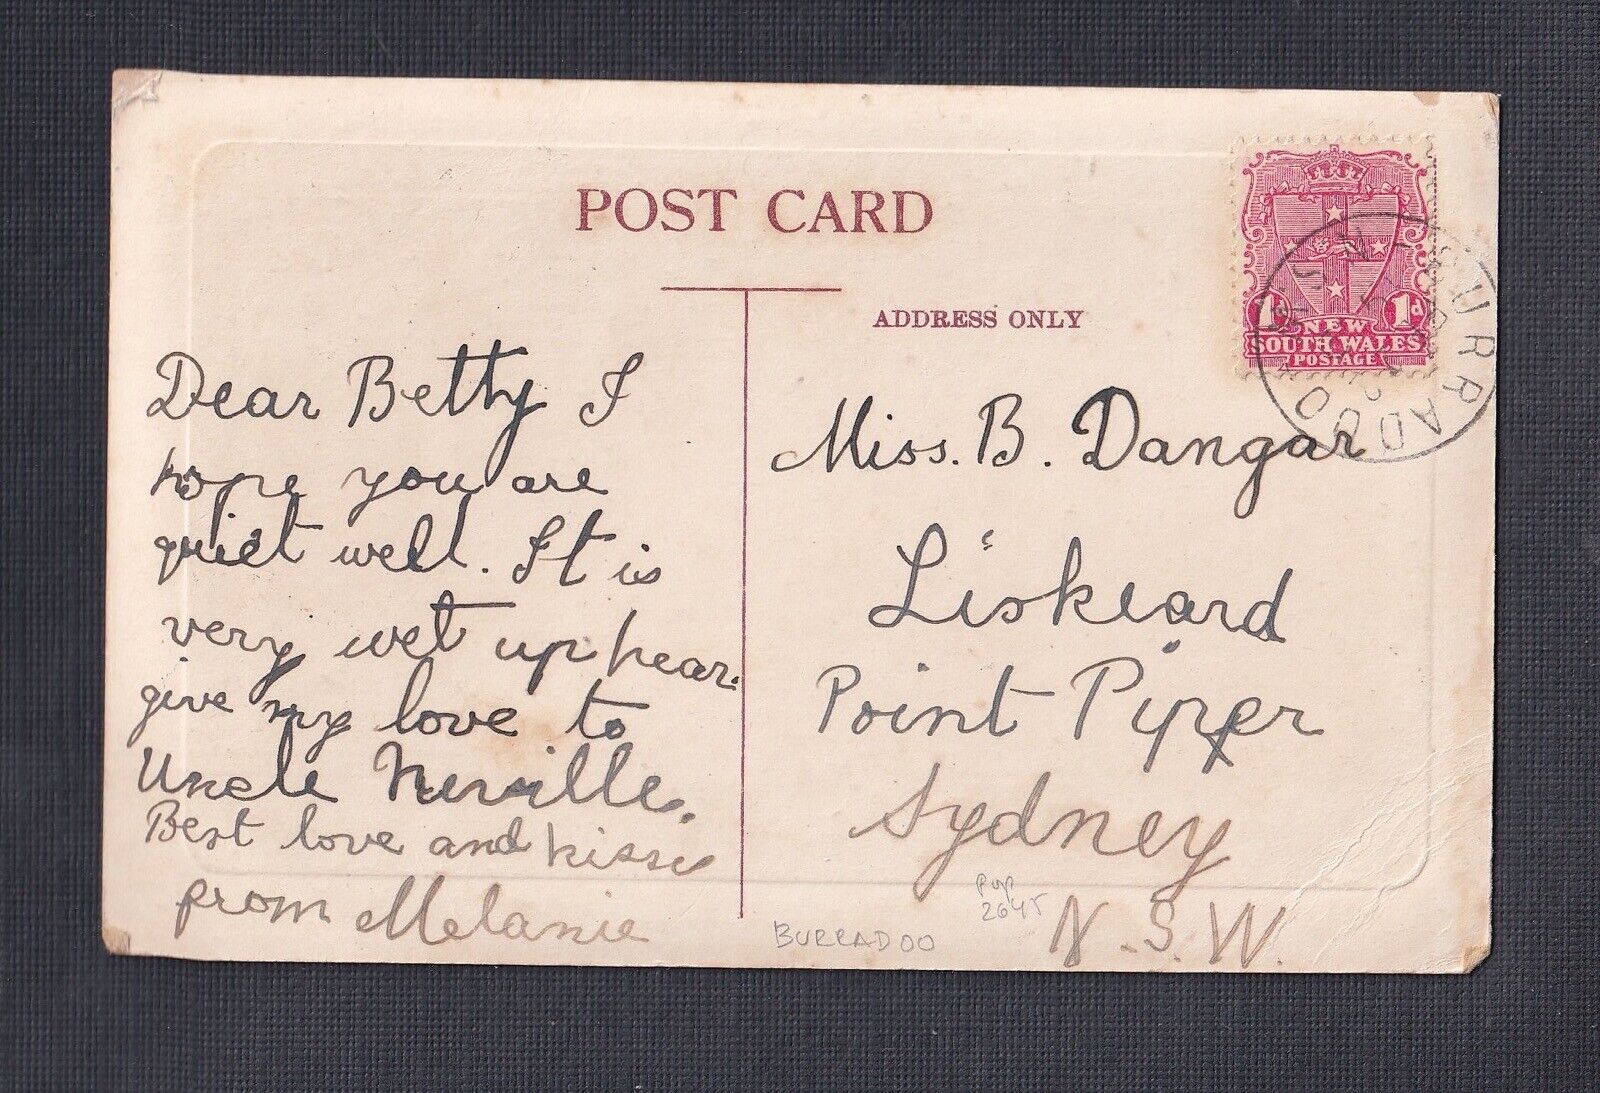 POST CARD
ADDRESS ONLY
1d 1d
NEW
SOUTH WALES
POSTAGE
BURRADOO
N.S.W
Dear Betty I
hope you are
quiet well. It is
very wet up hear.
give my love to
Uncle Neville.
Best love and kisses
from Melanie
Miss. B. Dangar
Liskeard
Point Piper
Sydney
N.S.W.
BURRADOO
pop
2645